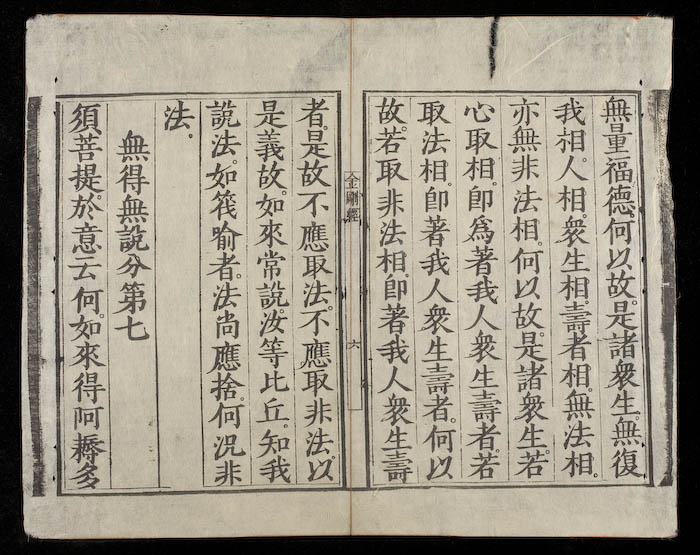 無量福德。何以故。是諸衆生。無復
我相。人相。衆生相。壽者相。無法相。
亦無非法相。何以故。是諸衆生。若
心取相。卽爲著我人衆生壽者。若
取法相。卽著我人衆生壽者。何以
故。若取非法相。卽著我人衆生壽
金剛經
六
者。是故不應取法。不應取非法。以
是義故。如來常說。汝等比丘。知我
說法。如筏喻者。法尚應捨。何況非
法。
無得無說分第七
須菩提。於意云何。如來得阿耨多